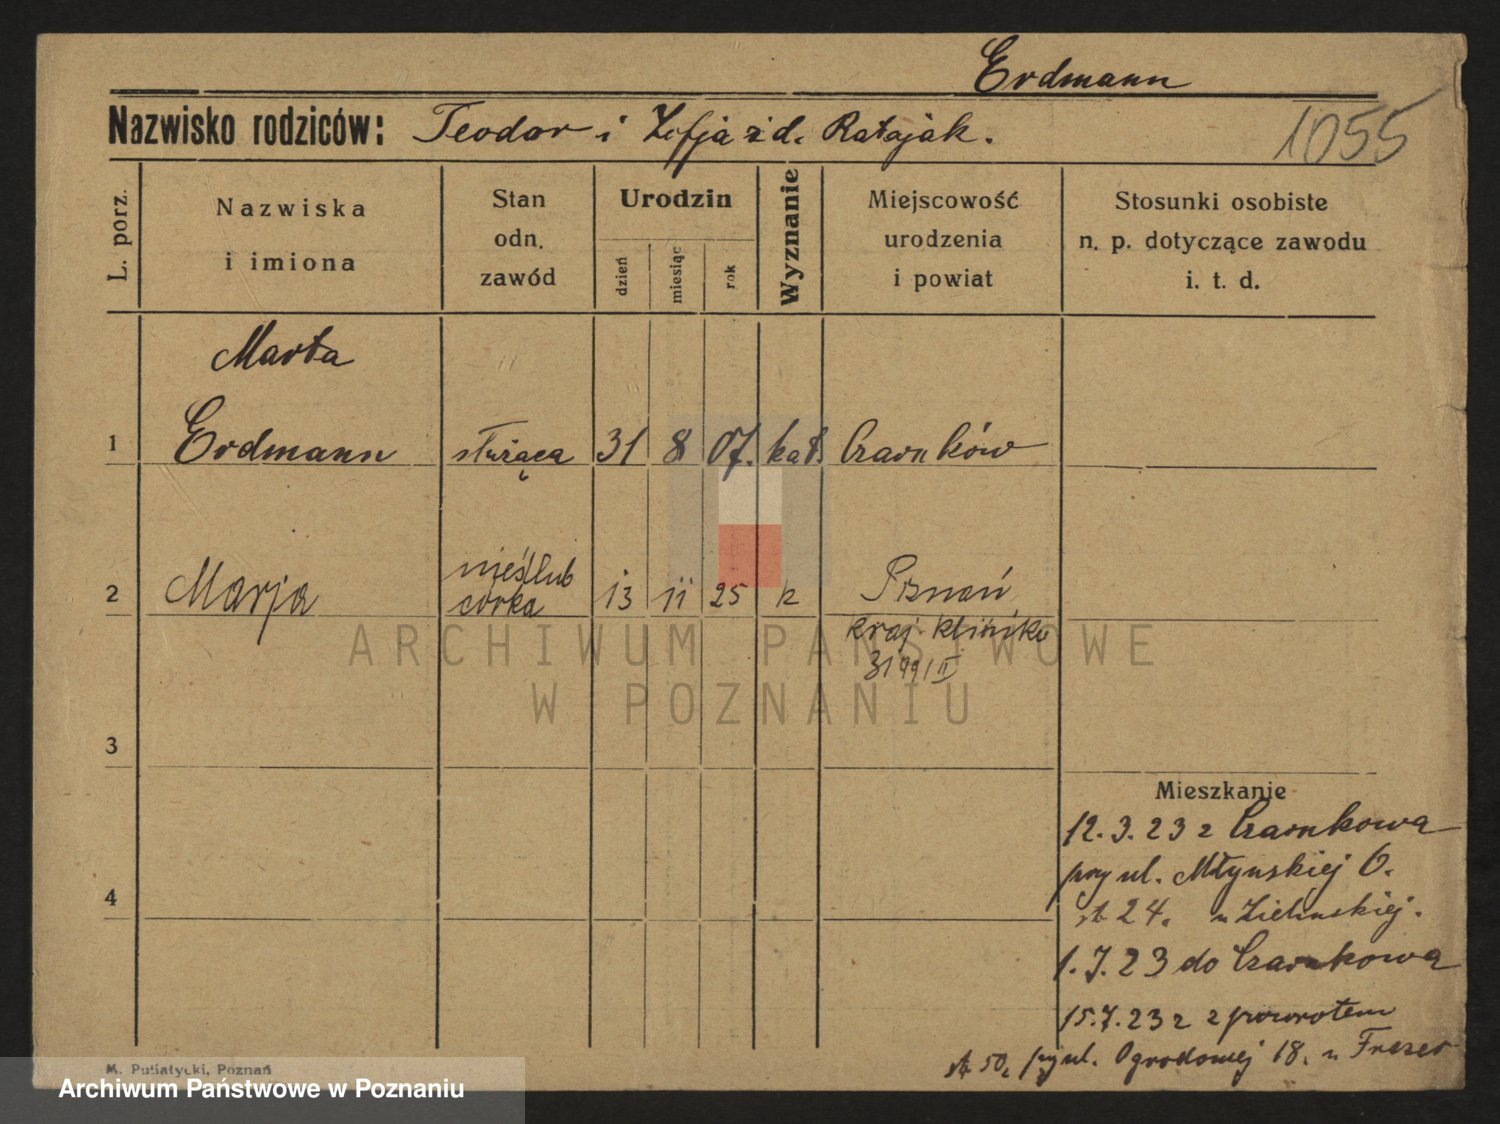 Erdmann
Nazwisko rodziców: Teodor i Zofja z d. Ratajak.
1055
L. porz.
Nazwiska i imiona
Stan odn. zawód
Urodzin
dzień
miesiąc
rok
Wyznanie
Miejscowość urodzenia i powiat
Stosunki osobiste n. p. dotyczące zawodu i. t. d.
Marta
1 Erdmann służąca 31 8 07. kat. Czarnków
nieślub
2 Marja córka 13 11 25 k Poznań
kraj. klinika
3199/II
ARCHIWUM PAŃSTWOWE
W POZNANIU
3
Mieszkanie
12.3.23 z Czarnkowa
przy ul. Młyńskiej 6.
4
24. u Zielińskiej.
1.7.23 do Czarnkowa
15.7.23 z powrotem
50, przy ul. Ogrodowej 18. u Frezer
M. Putiatycki, Poznań
Archiwum Państwowe w Poznaniu